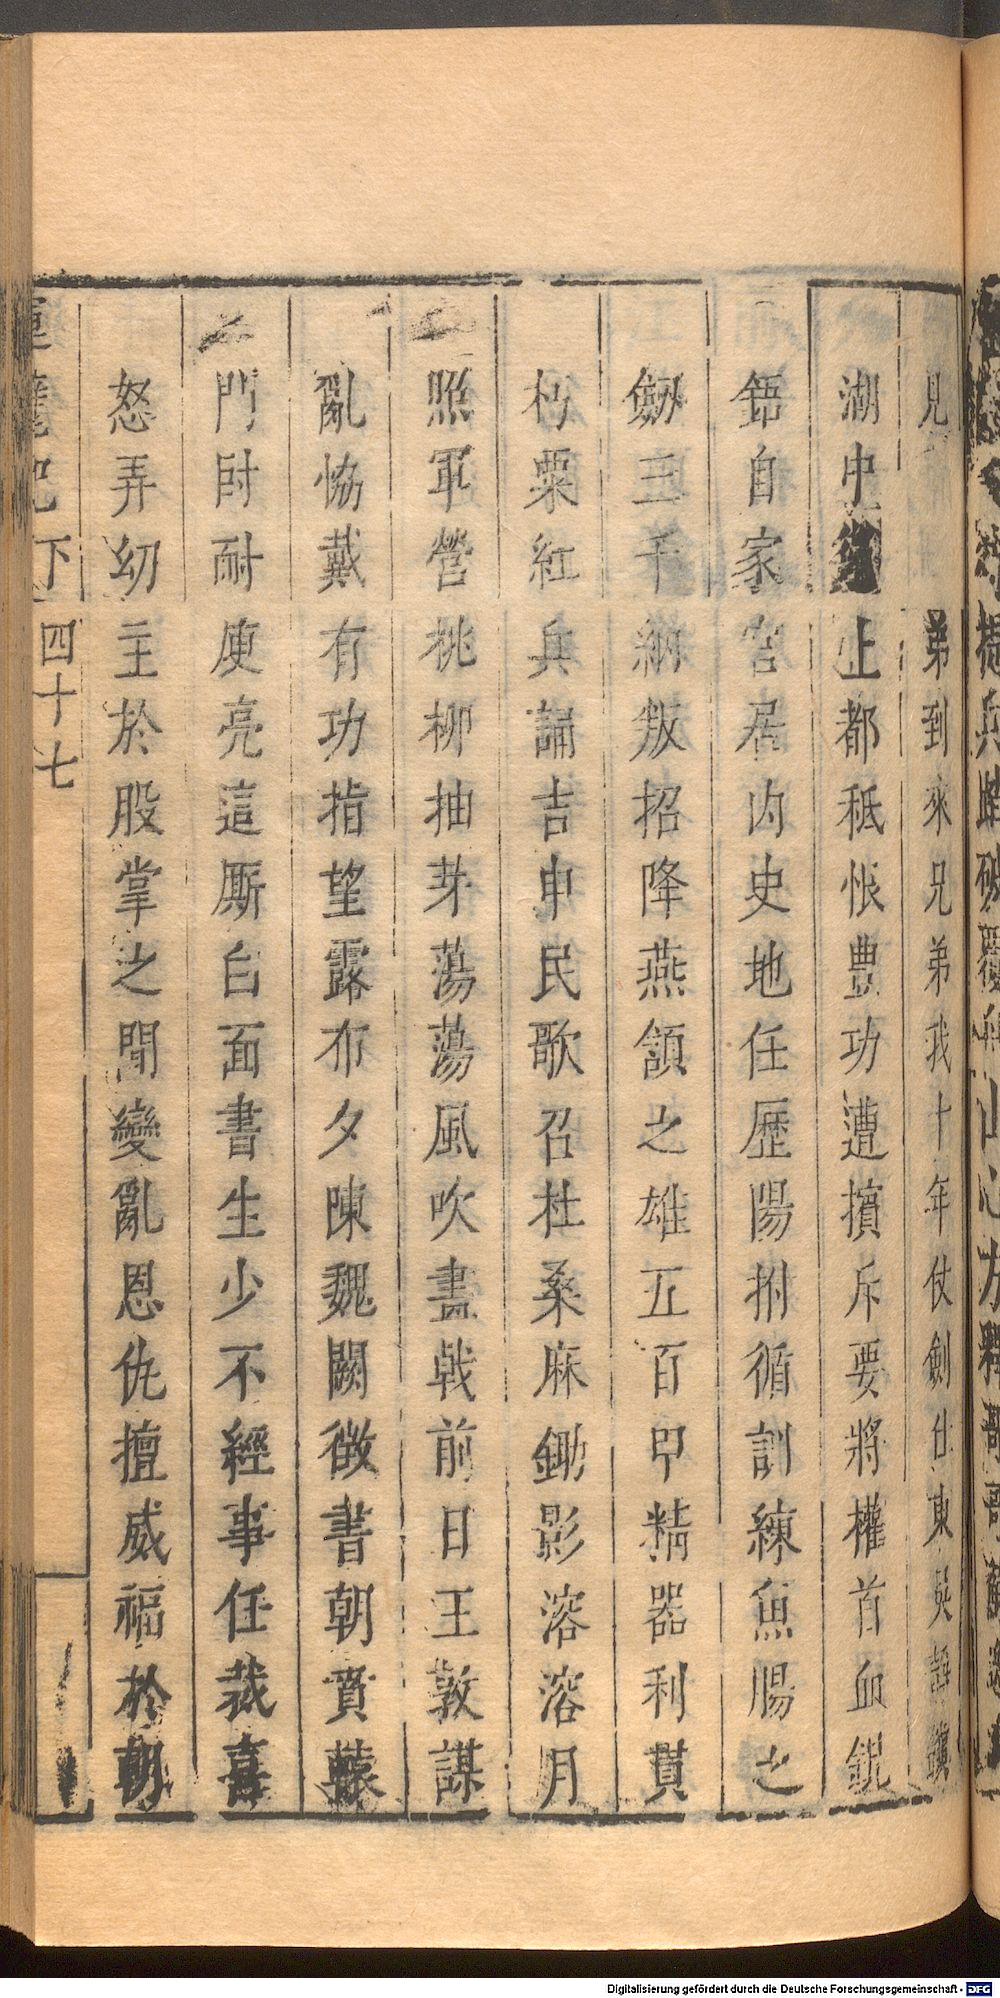 見弟到來兄弟我十年仗劍仕東吳辭鎮
湖中上都秪悵豊功遭擯斥要將權首血錕
鋙自家宮居内史地任歷陽拊循訓練魚腸之
劔三千納叛招降燕頷之雄五百甲精器利貫
朽粟紅兵誦吉申民歌召杜桑麻鋤影溶溶月
照軍營桃柳抽芽蕩蕩風吹畫戟前日王敦謀
亂恊戴有功指望露布夕陳魏闕徵書朝賁轅
門尀耐庾亮這厮白面書生少不經事任裁喜
怒弄幼主於股掌之間變亂恩仇擅威福於朝
運甓記下四十七
Digitalisierung gefördert durch die Deutsche Forschungsgemeinschaft - DFG